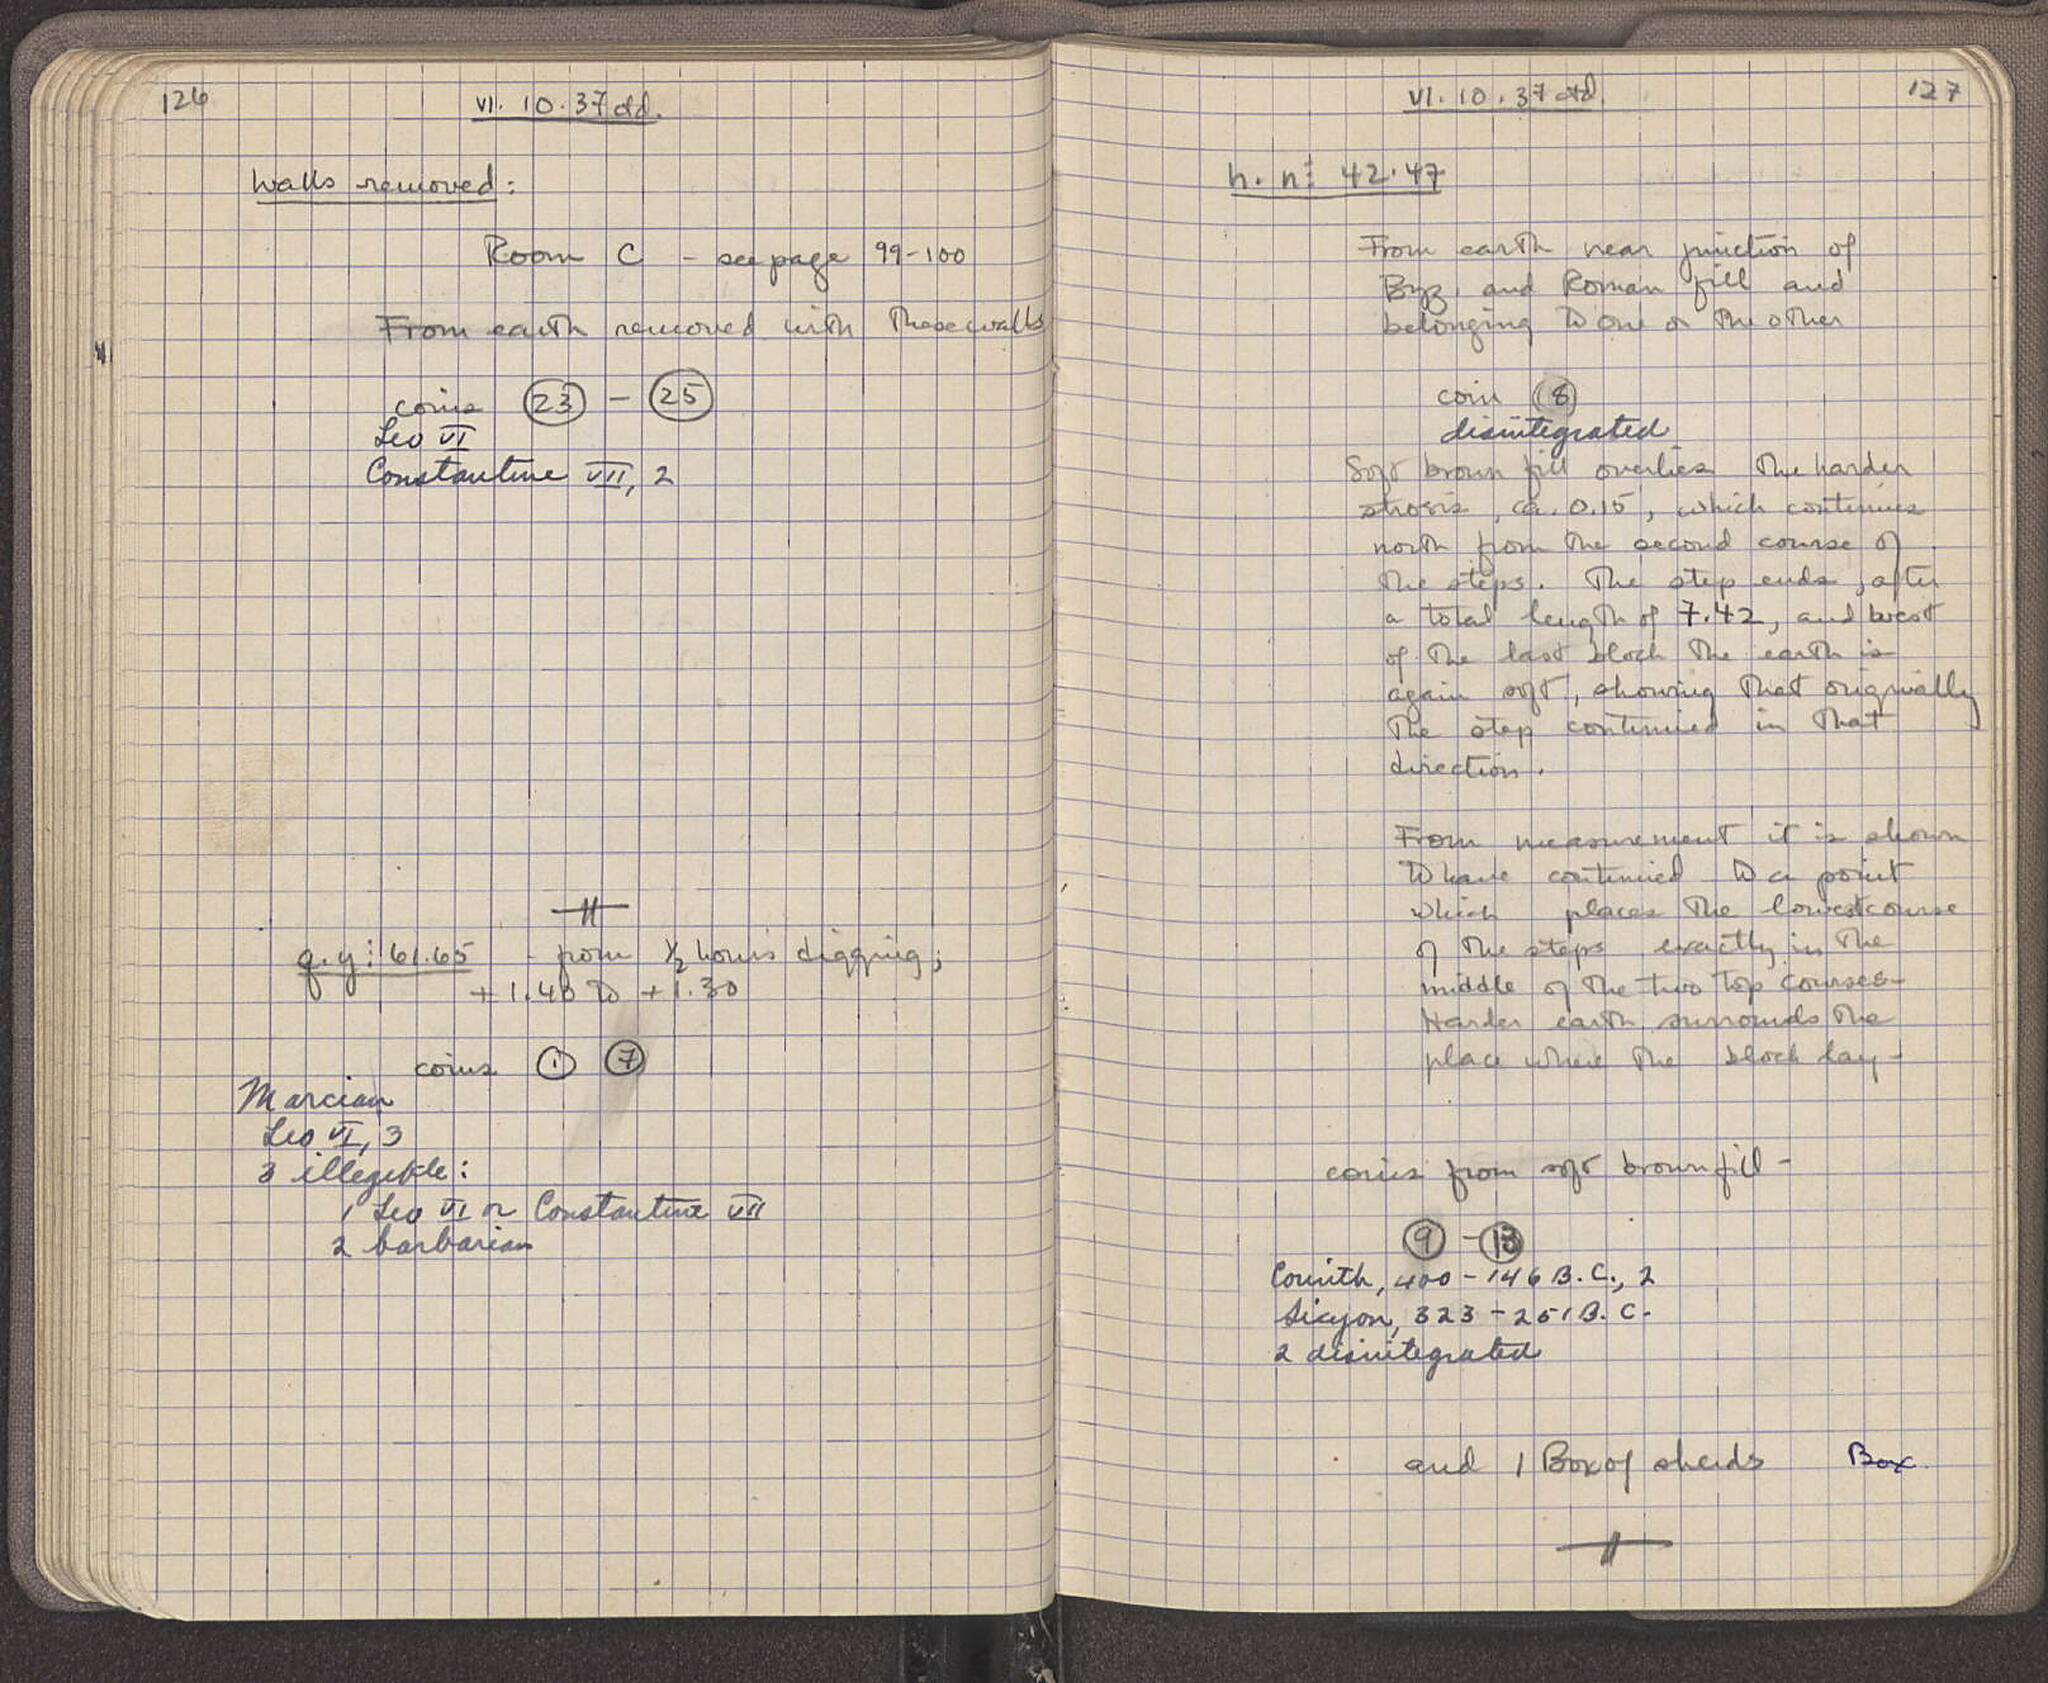 126
VI. 10. 37 ctd.
Walls removed:
Room C - see page 99-100
From earth removed with these walls
coins 23 - 25
Leo VI
Constantine VII, 2
g.y: 61.65 - from 1/2 hours digging;
+1.40 to +1.30
coins 1 7
Marcian
Leo VI, 3
3 illegible:
1 Leo VI or Constantine VII
2 barbarian
VI. 10. 37 ctd.
127
h. n: 42.47
From earth near junction of
Byz. and Roman fill and
belonging to one or the other
coin 8
disintegrated
Soft brown fill overlies the harder
strosis, ca. 0.15, which continues
north from the second course of
the steps. The step ends, after
a total length of 7.42, and west
of the last block the earth is
again soft, showing that originally
the step continued in that
direction.
From measurement it is shown
to have continued to a point
which places the lowest course
of the steps exactly in the
middle of the two top courses-
Harder earth surrounds the
place where the block lay-
coins from soft brown fill -
9 - 13
Corinth, 400-146 B.C., 2
Sicyon, 323-251 B.C.
2 disintegrated
and 1 Box of sherds Box